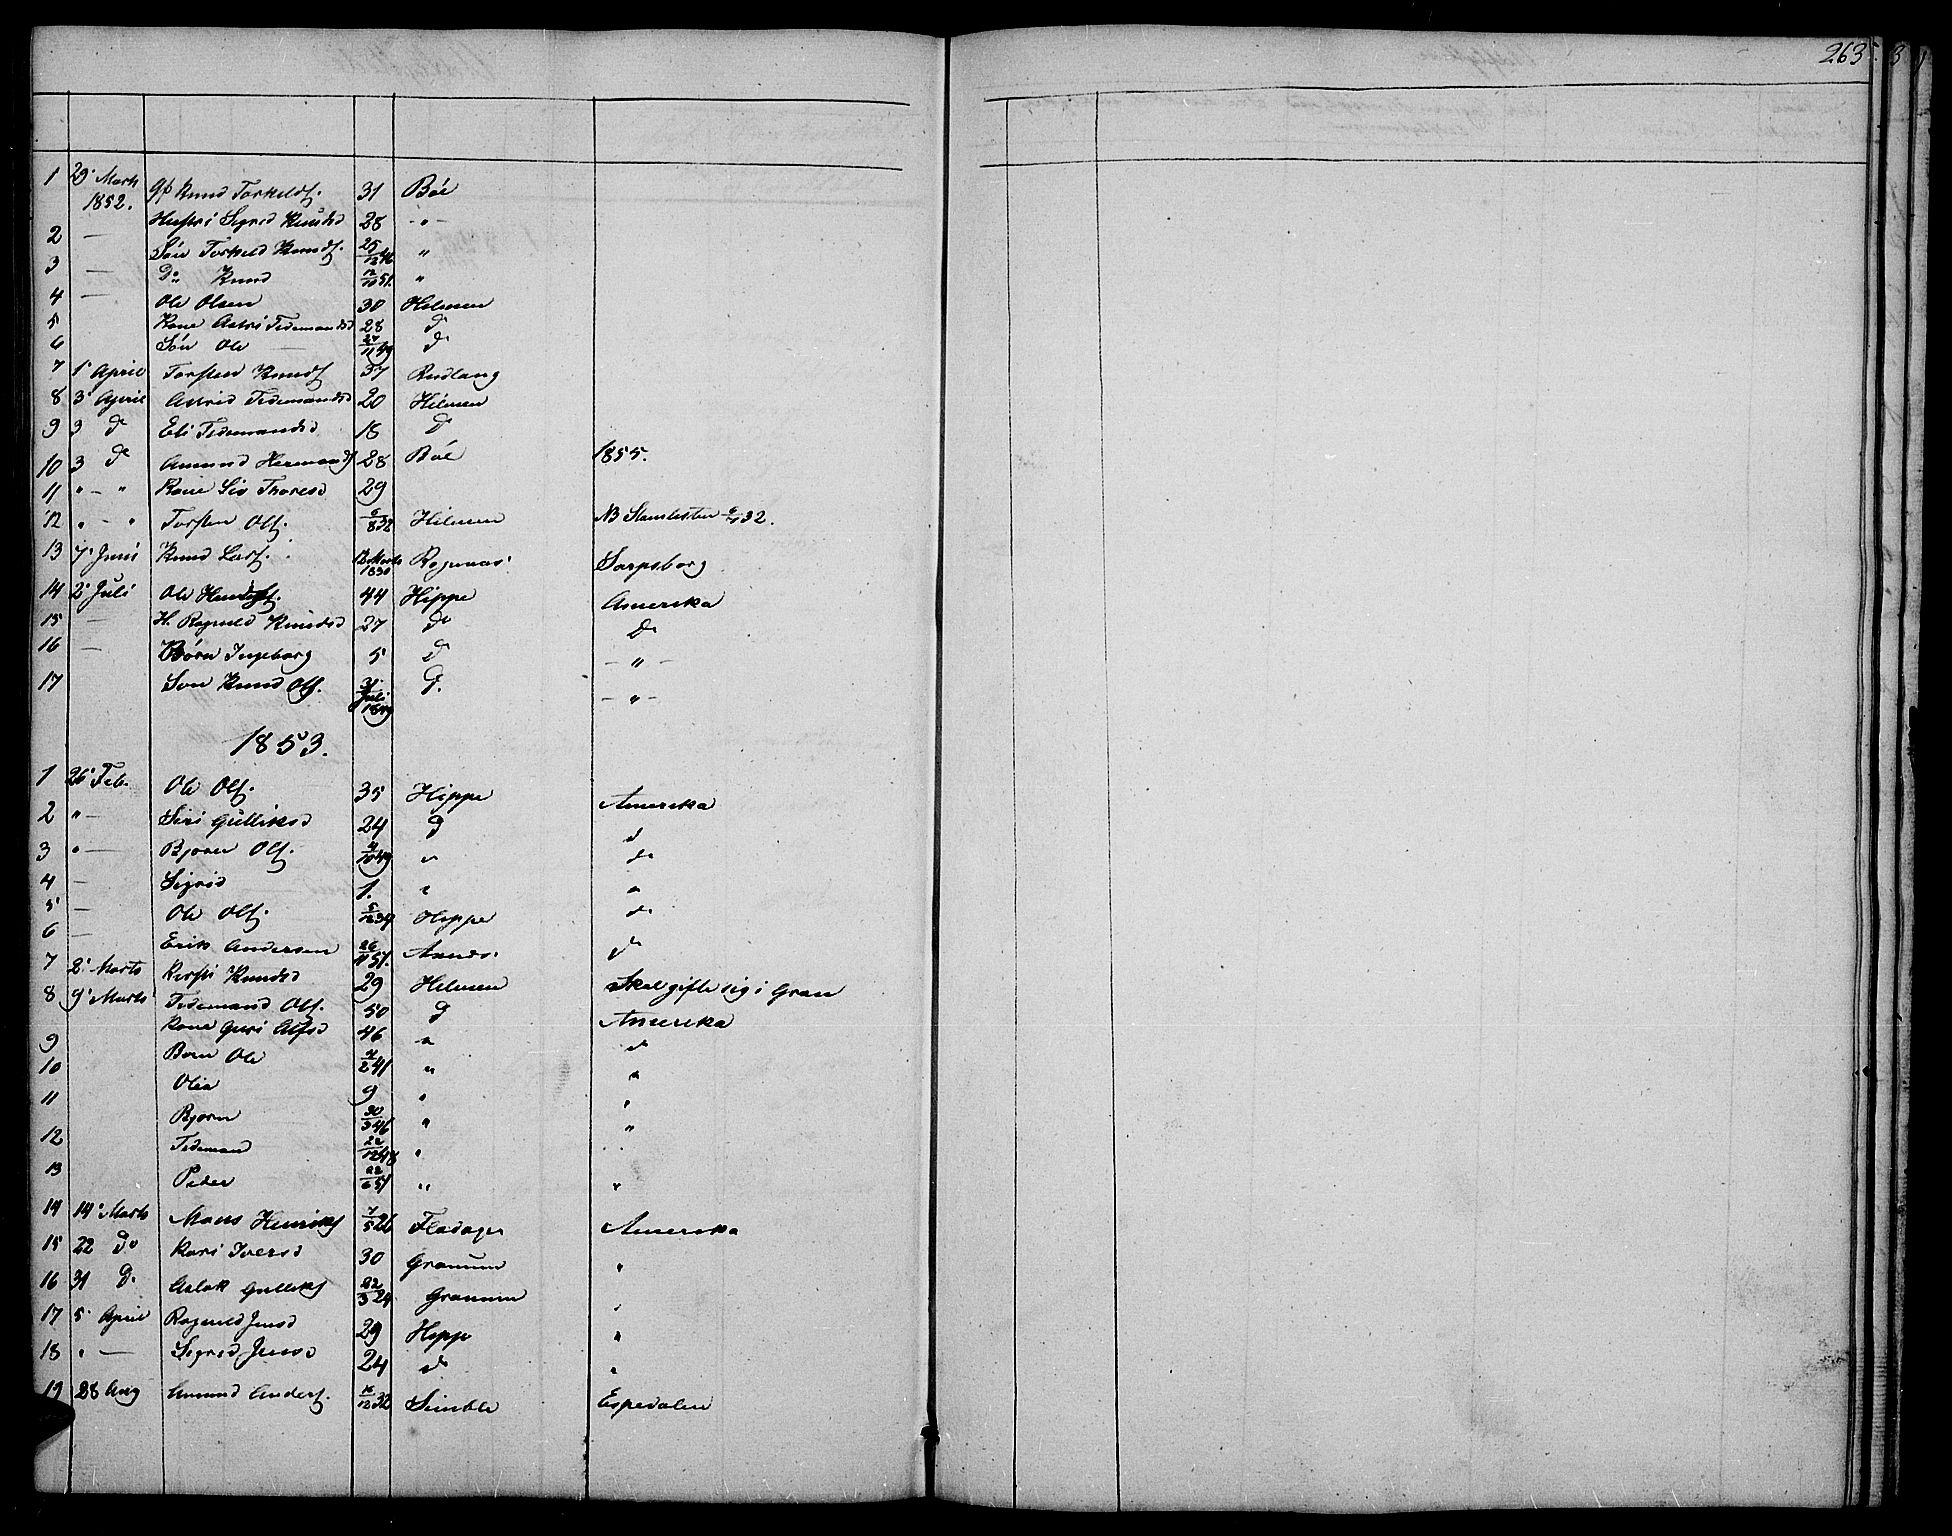 263
1 29 Marts 1852. Gp Knud Torkelds. 31 Böe
2 — Hustri Sigrid Knudsd 28 - " -
3 — Sön Torkeld Knuds. 25/12 46 "
4 — Do Knud 12/10 51. "
5 Ole Olsen 30 Hilmen
6 Kone Astri Tidemandsd 28 do
Sön Ole — 27/11 49 do
7 1 April Torsten Knuds 37 Rudlang
8 3 April Astrid Tidemandsd 20 Hilmen
9 3 do Eli Tidemandsd 18 do
10 3 do Amund Hermands 28 Böe 1855.
11 " - " Kone Siv Thoresd 29
12 " - " Torsten Ols. 6/8 32 Hilmen NB 32.
13 7 Juni Knud Lars. 12 Marts 1830 Rogenæs Sarpsborg
14 2 Juli Ole 44 Hippe Amerika
15 — H. Ragnild Knudsd 27 do Do
16 — Börn Ingeborg 5 do - " -
17 Sön Knud Ols. 31 Juli 1849 do. - " -
1853.
1 26 Feb. Ole Ols. 35 Hippe Amerika
2 " - Siri Gulliksd 24 do d
3 " — Bjoren Ols. 4/10 49 " do
4 — Sigrid 1. " "
5 — Ole Ols. 5/12 34 Hippe do
6 — Erik Andersen 26/11 51. do
7 2 Marts Kirsti Knudsd 29 Hilmen Skal gifte sig i Gran
8 9 Marts Tidemand Ols. 50 do Amerika
9 Kone Guri Olsd 46 " do
10 Barn Ole 4/2 41 " "
11 Olia 9 " "
12 Bjorn 30/3 46 " "
13 Tideman 22/12 48 "
Peder 22/6 51 " "
14 14 Marts Mons Henriks 7/5 26 Fladager Amerika
15 22 Do Kari Iversd 30 Granum "
16 31 D. Aslak Gulliks 22/3 24 Granum "
17 5 April Ragnild Jensd 29 Hippe "
18 " — Sigrid Jensd 24 do "
19 28 Aug Amund Anders. 16/12 32 Simble Espedalen